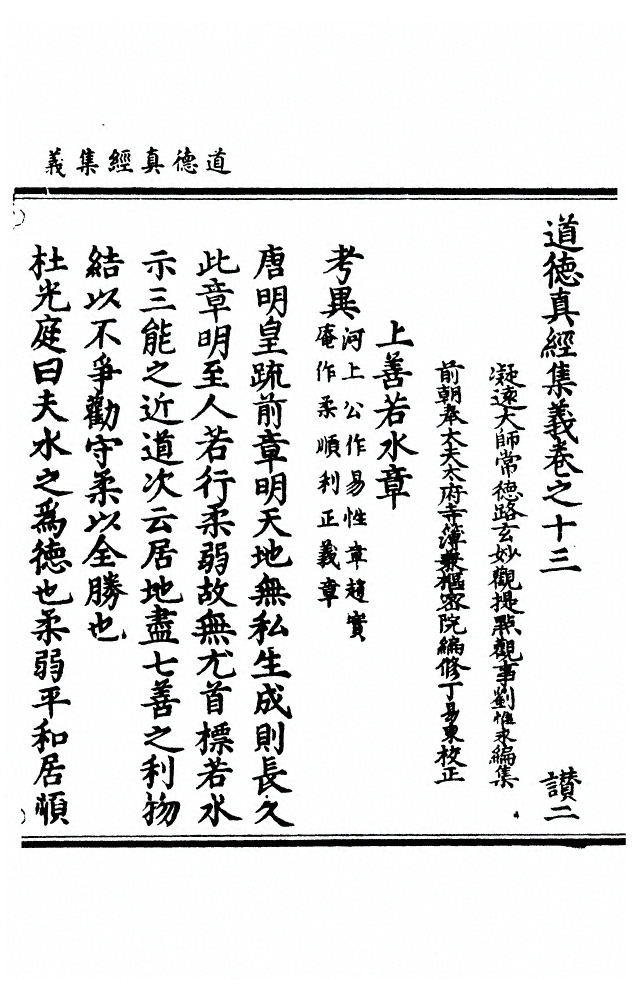 道德真經集義
道德真經集義卷之十三　讃二
凝遠大師常德路玄妙觀提點觀事劉惟永編集
前朝奉大夫太府寺簿兼樞密院編修丁易東校正
上善若水章
考異河上公作易性章趙實
庵作柔順利正義章
唐明皇疏前章明天地無私生成則長久
此章明至人若行柔弱故無尤首標若水
示三能之近道次云居地盡七善之利物
結以不爭勸守柔以全勝也
杜光庭曰夫水之爲德也柔弱平和居順